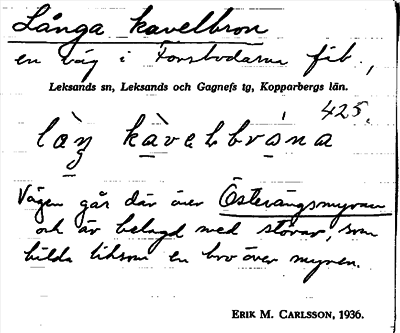 Långa kavelbron
en väg i Forsbodarna fäb.,
Leksands sn, Leksands och Gagnefs tg, Kopparbergs län.
425.
Vägen går där över Österängsmyran
och är belagd med stövar, som
bilda liksom en bro över myren.
ERIK M. CARLSSON, 1936.